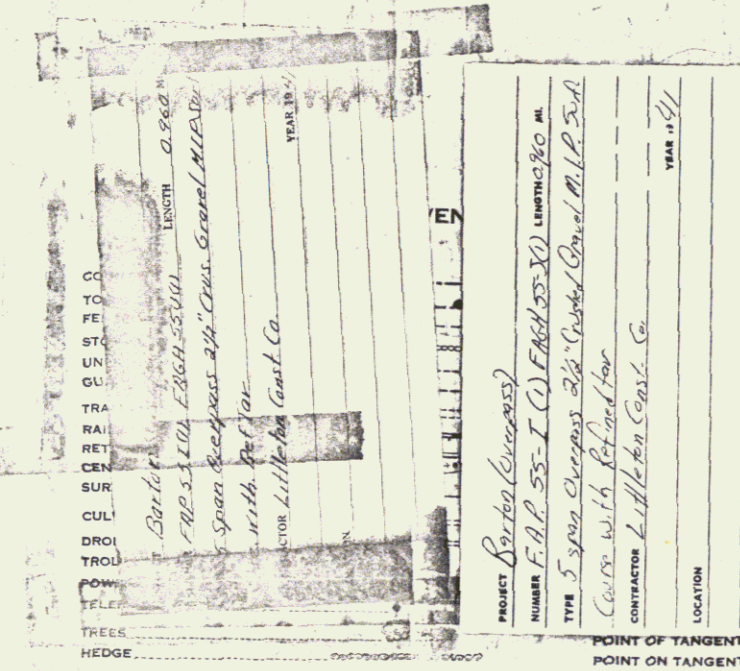 CO
TO
FE
STO
UN
GU
TRA
RAI
RET
CEN
SUR
CUL
DROI
TROL
POW
TELE
TREES
HEDGE
Barton
LENGTH 0.960 M
FAP 55
Span Overpass 2½" Crus. Gravel M.I.P. Sur
with Ref Tar
ACTOR Littleton Const. Co.
YEAR 1941
VEN
PROJECT Barton (Overpass)
NUMBER F.A.P. 55-I (1) FAGH 55-J(1) LENGTH 0.960 MI.
TYPE 5 span Overpass 2½" Crushed Gravel M.I.P. Sur.
Course with Refined tar
CONTRACTOR Littleton Const. Co.
YEAR 1941
LOCATION
POINT OF TANGENT
POINT ON TANGENT